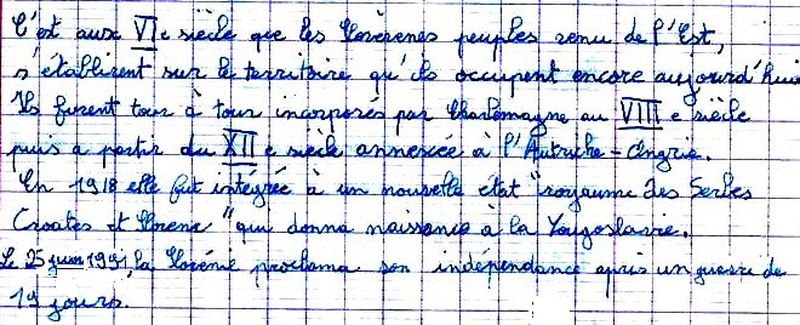 C'est aux VIe siècle que les Slovènes peuples venu de l'Est,
s'établirent sur le territoire qu'ils occupent encore aujourd'hui
Ils furent tour à tour incorporés par Charlemagne au VIII e siècle
puis a partir du XII e siècle annexée à l'Autriche-Ongrie.
En 1918 elle fut intégrée à un nouvelle état "royaume des Serbes
Croates et Slovene" qui donna naissance à la Yougoslavie.
Le 25 juin 1991, la Slovénie proclama son indépendance après un guerre de
19 jours.